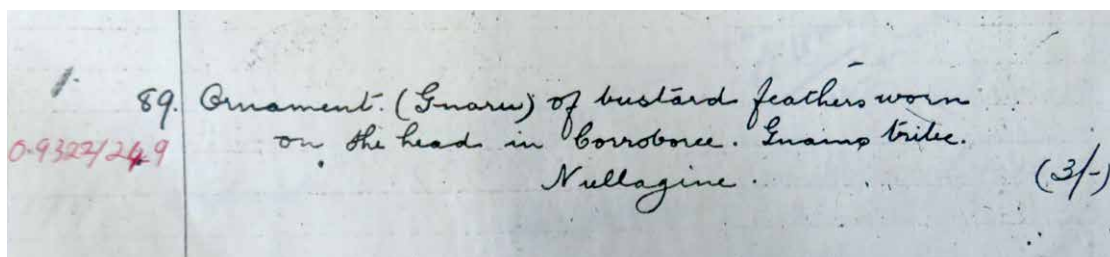 1.
89. Ornament. (Gnaru) of bustard feathers worn
0.9322/249 on the head in Corroboree. Gnamo tribe.
Nullagine. (3/-)